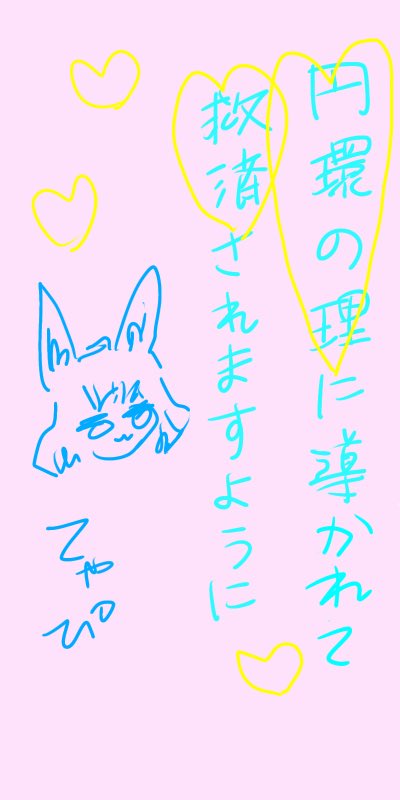 円環の理に導かれて
救済されますように
てゃぴ